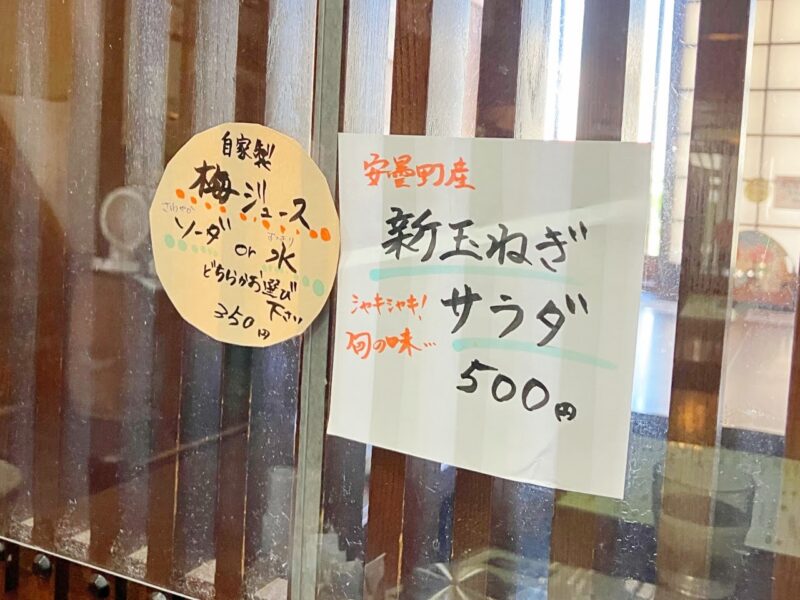 自家製
梅ジュース
さわやか
すっきり
ソーダ or 水
どちらかお選び
下さい
350円
安曇町産
新玉ねぎ
シャキシャキ!
サラダ
旬の味…
500円